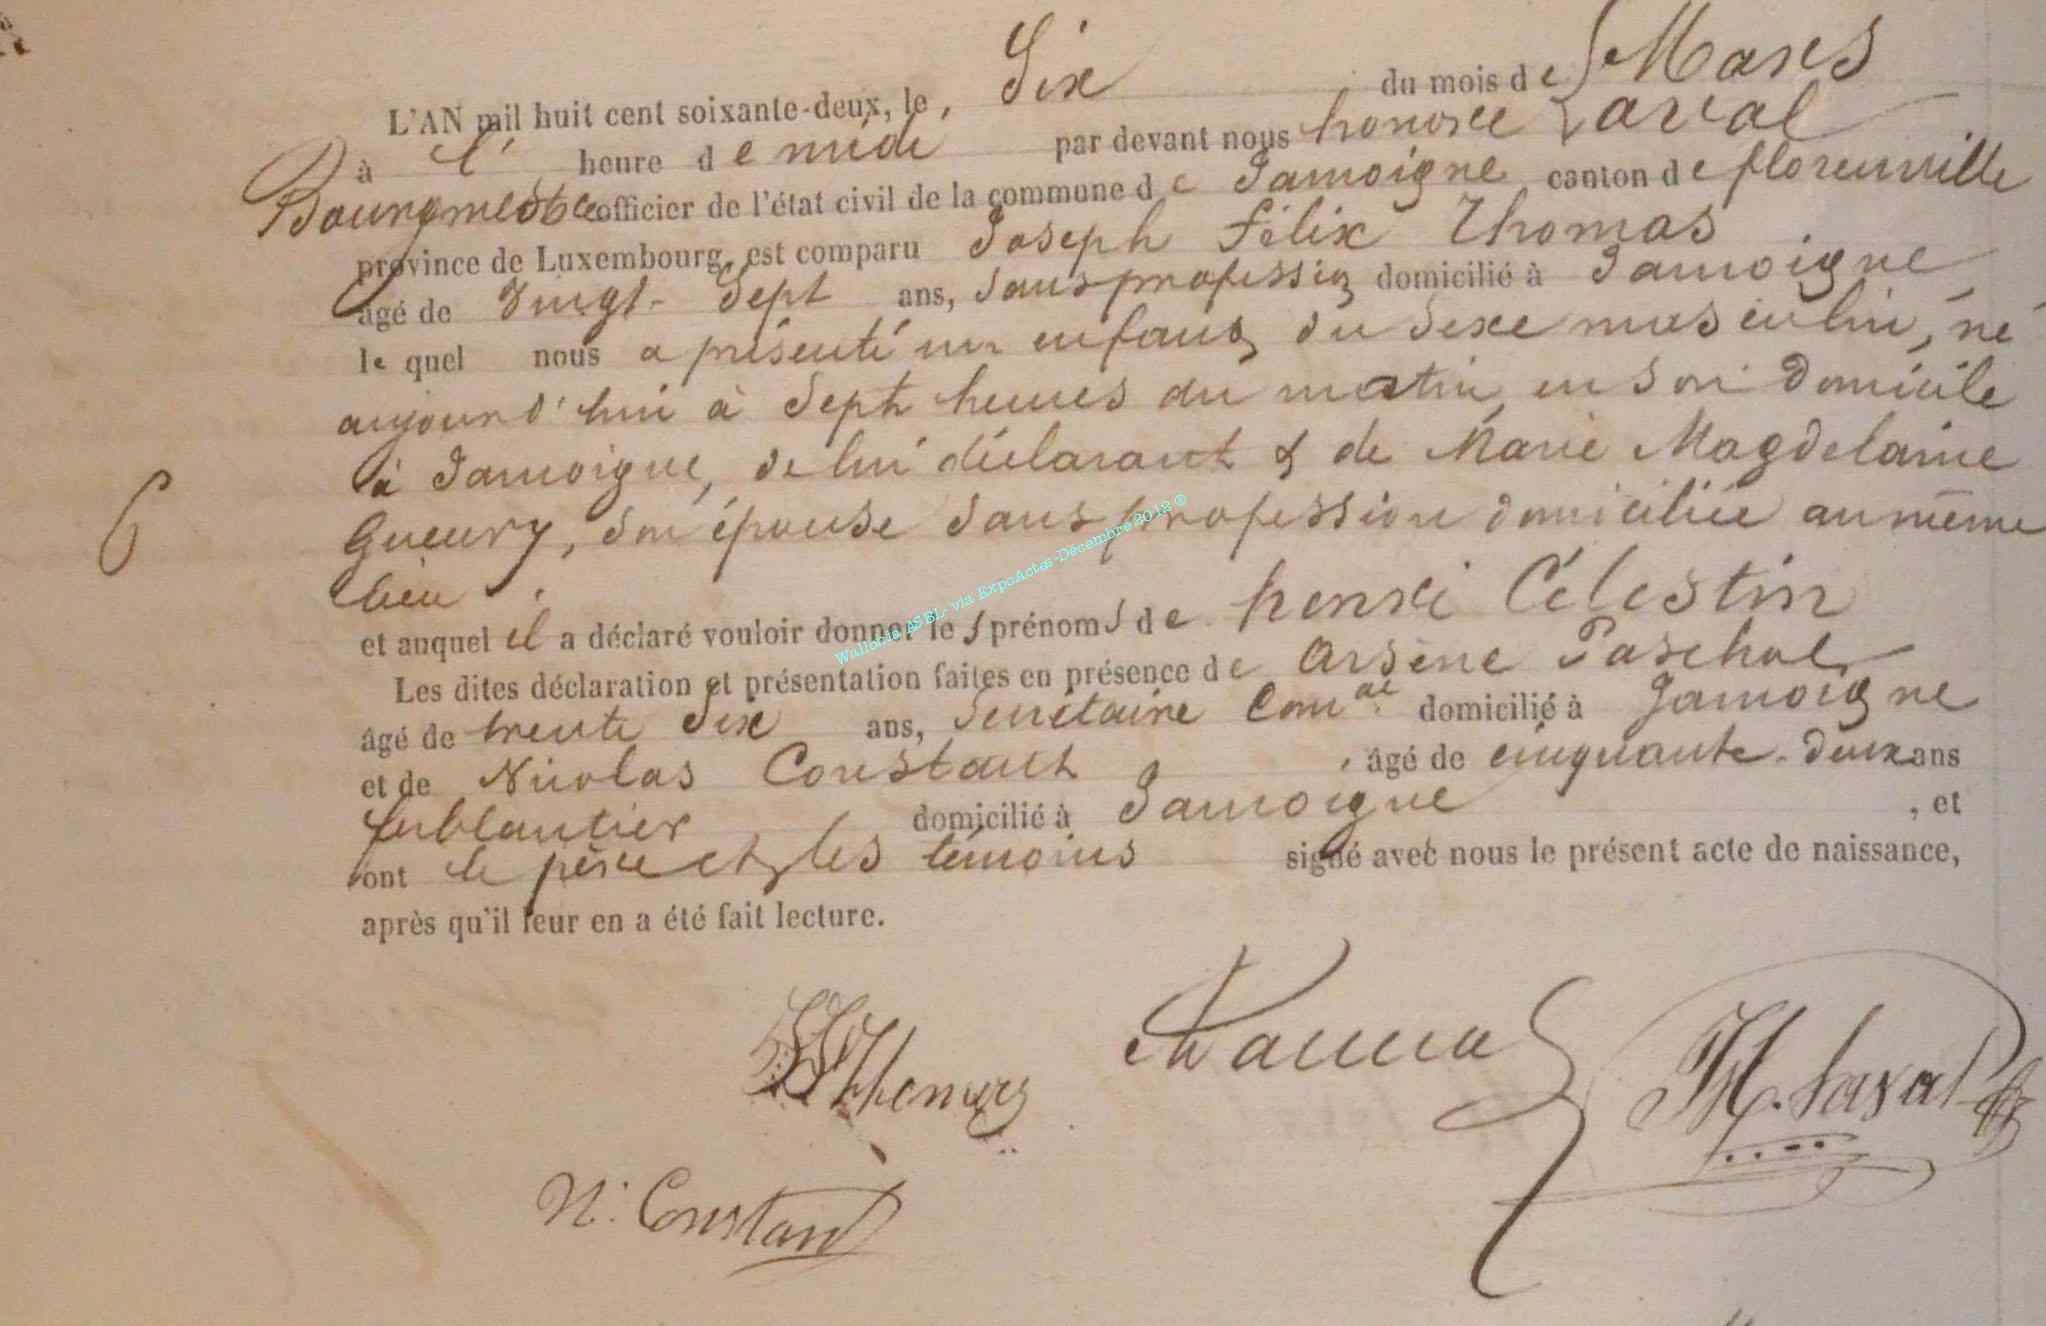 L'AN mil huit cent soixante-deux, le, Six du mois de Mars
à l' heure de midi par devant nous honoré Laval
Bourgmestre officier de l'état civil de la commune de Jamoigne canton de florenville
province de Luxembourg, est comparu Joseph Félix Thomas
âgé de Vingt-Sept ans, Sans profession domicilié à Jamoigne,
le quel nous a présenté un enfant du Sexe masculin, né
aujourd'hui à Sept heures du matin en Son Domicile
à Jamoigne, de lui déclarant & de Marie Magdelaine
Gueury, Son épouse Sans profession domiciliée au même
lieu.
et auquel il a déclaré vouloir donner les prénoms de henri Célestin
Les dites déclaration et présentation faites en présence de Arsène Paschal
âgé de trente Six ans, Secrétaire Com.al domicilié à Jamoigne
et de Nicolas Constant, âgé de cinquante-deux ans
ferblantier domicilié à Jamoigne, et
ont le père et les témoins signé avec nous le présent acte de naissance,
après qu'il leur en a été fait lecture.
6
Thomas
H. Laval
N. Constant
Wallonie ASBL- via ExpoActes -Décembre 2012 ®